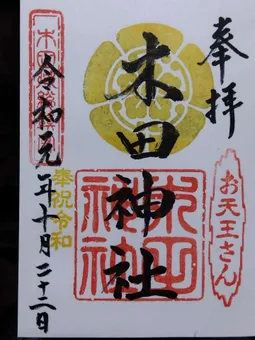 奉拝
木田神社
木田神社
お天王さん
奉祝令和
令和元年十月二十二日